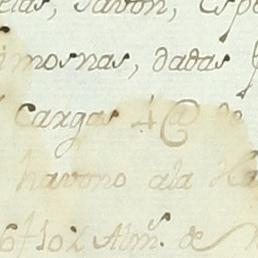 elas, Savon, Espe
imosnas, dadas
Cargas 4@ de
havono ala Ha
Alm.ˢ de